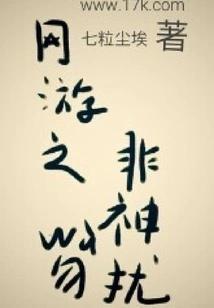 www.17k.com
七粒尘埃 著
网游之
非神勿扰